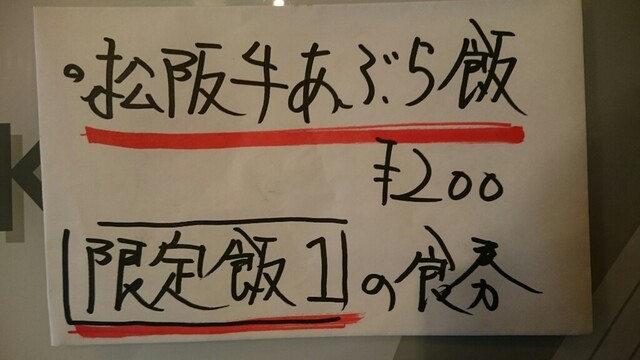 。松阪牛あぶら飯
¥200
限定飯1の食券